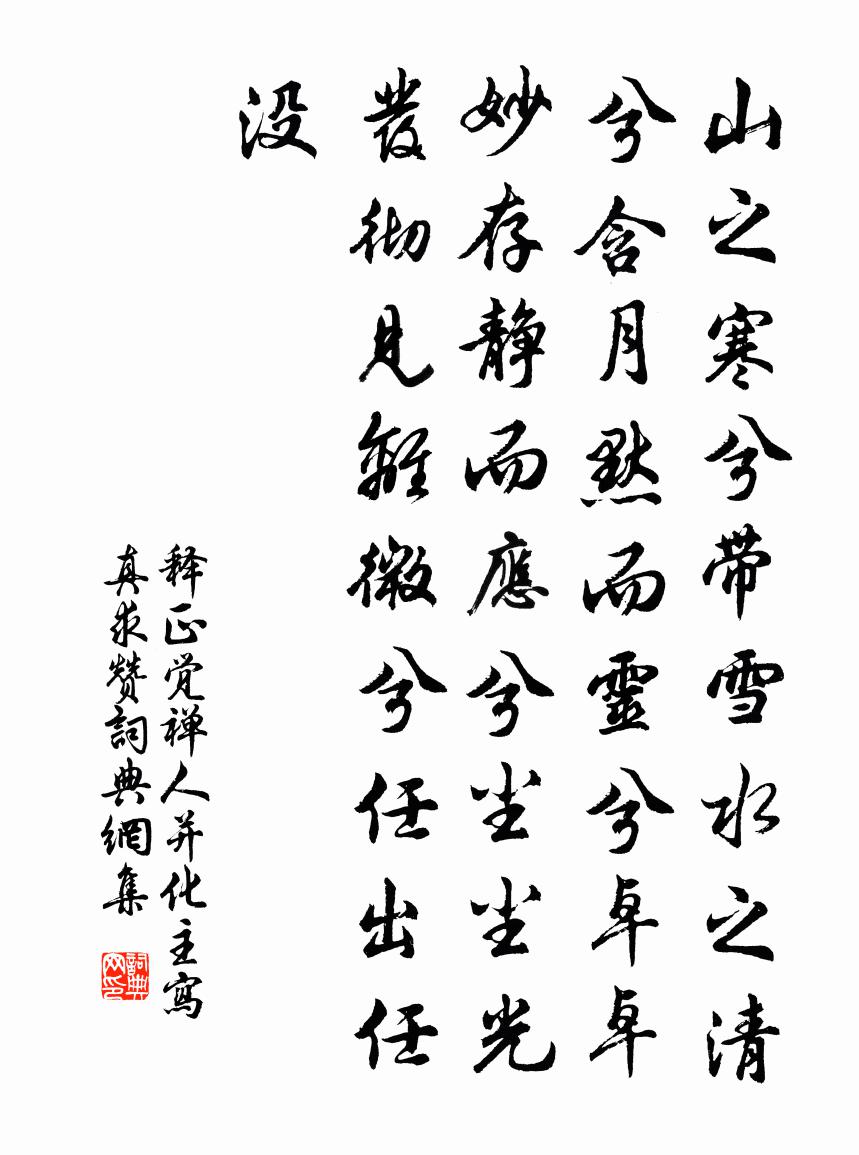 山之寒兮带雪水之清
兮含月默而靈兮卓卓
妙存静而應兮尘尘光
發彻見離微兮任出任
没
释正觉禅人并化主寫
真求赞詞典網集
詞典网印